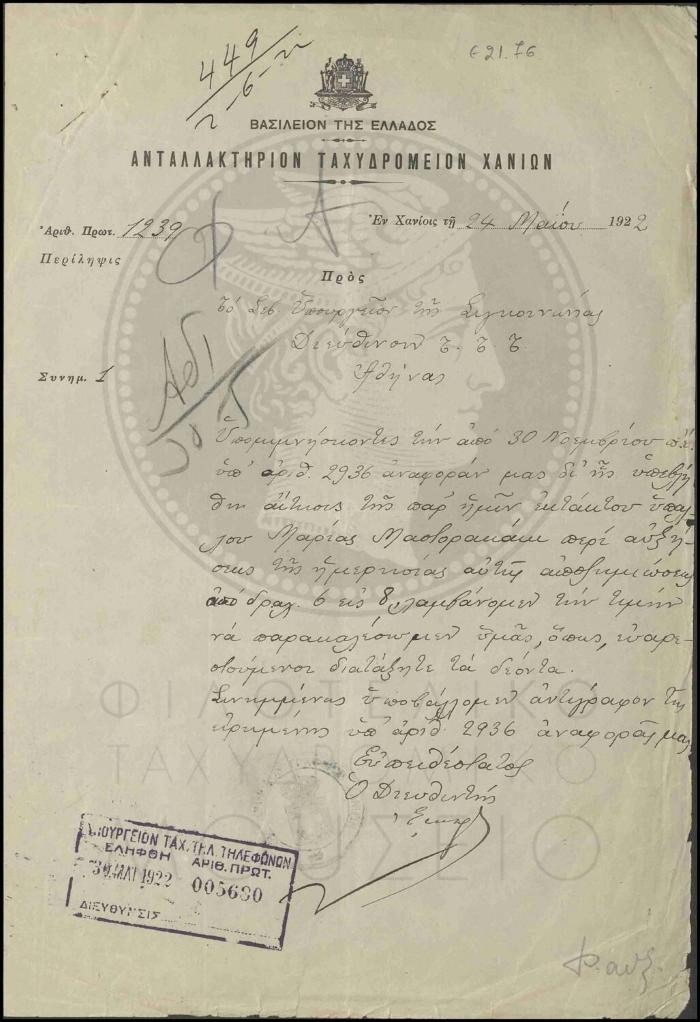 449
2-6-22
Є 21.76
ΒΑΣΙΛΕΙΟΝ ΤΗΣ ΕΛΛΑΔΟΣ
ΑΝΤΑΛΛΑΚΤΗΡΙΟΝ ΤΑΧΥΔΡΟΜΕΙΟΝ ΧΑΝΙΩΝ
Ἀριθ. Πρωτ. 1239
Ἐν Χανίοις τῇ 24 Μαΐου 1922
Περίληψις
Πρὸς
Τὸ Σεβ Ὑπουργεῖον τῆς Συγκοινωνίας
Διεύθυνσιν Τ. Τ. Τ.
Συνημ. 1
Ἀθήνας
Ὑπομιμνήσκοντες τὴν ἀπὸ 30 Νοεμβρίου
ὑπ' ἀριθ. 2936 ἀναφοράν μας δι' ἧς ὑπεβλή
θη αἴτησις τῆς παρ' ἡμῖν ἐκτάκτου ὑπαλ
λου Μαρίας περὶ αὐξή-
σεως τῆς ἡμερησίας αὐτῆς ἀποζημιώσεως
ἀπὸ δραχ. 6 εἰς 8, λαμβάνομεν τὴν τιμὴν
νὰ παρακαλέσωμεν ὑμᾶς, ὅπως, εὐαρε-
στούμενοι διατάξητε τὰ δέοντα.
Συνημμένως ὑποβάλλομεν ἀντίγραφον τῆς
εἰρημένης ὑπ' ἀριθ. 2936 ἀναφορᾶς μας
Εὐπειθέστατος
Ὁ Διευθυντής
ΥΠΟΥΡΓΕΙΟΝ ΤΑΧ. ΤΗΛ. ΤΗΛΕΦΩΝΩΝ
ΕΛΗΦΘΗ ΑΡΙΘ. ΠΡΩΤ.
ΜΑΙ 1922 005680
ΔΙΕΥΘΥΝΣΙΣ
ΦΙΛΟΤΕΛΙΚΟ
ΤΑΧΥΔΡΟΜΙΚΟ
ΜΟΥΣΕΙΟ
Φ. αυξ.